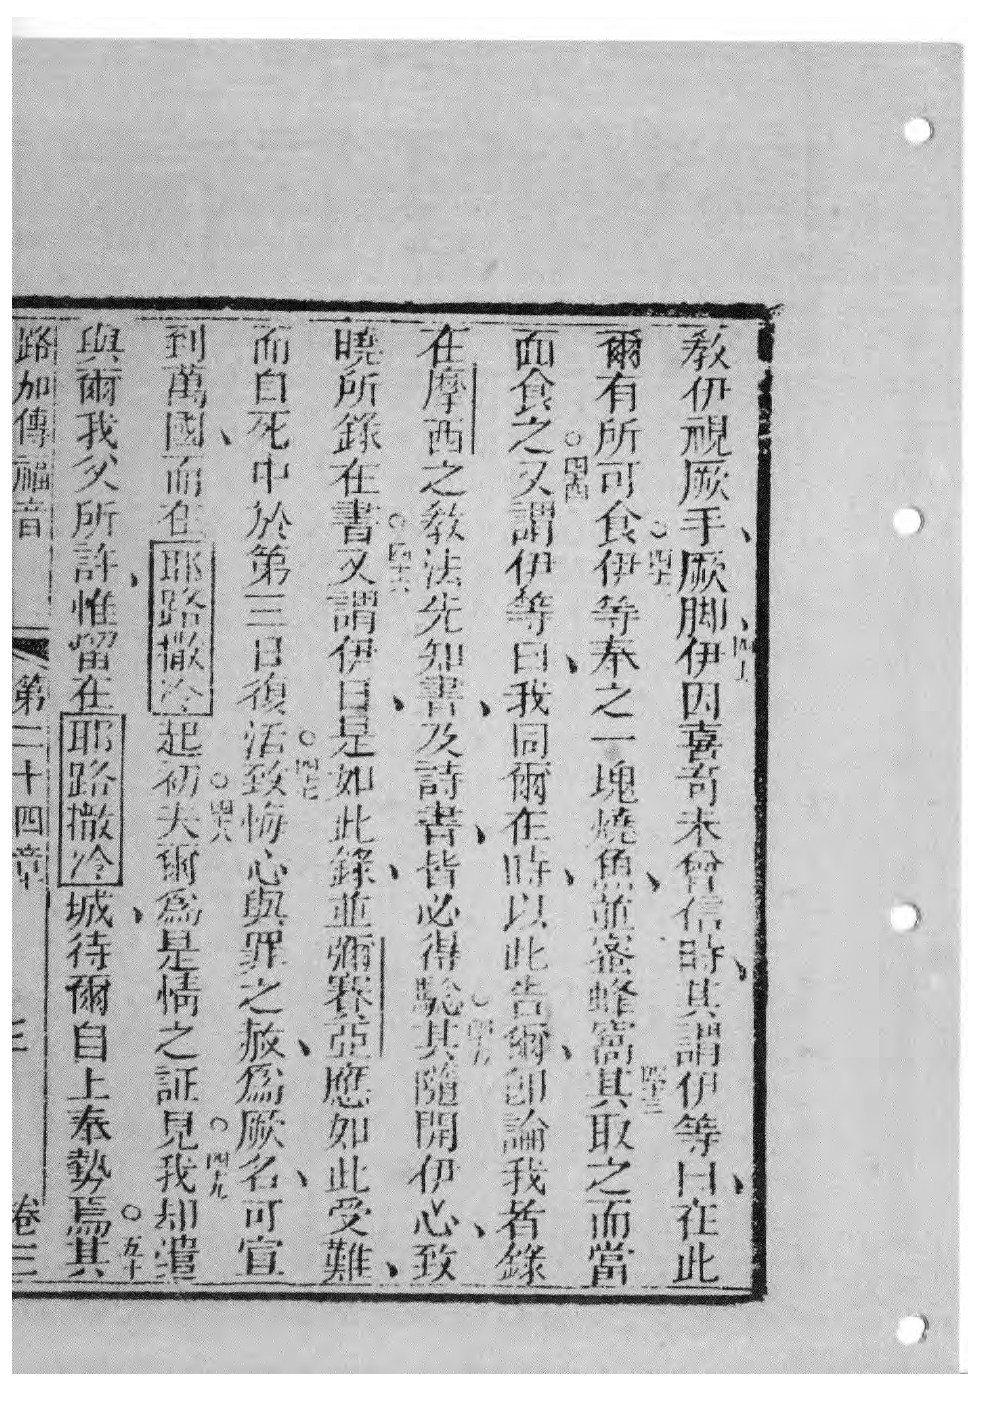 教伊視厥手、厥脚、四十伊因喜奇未曾信時、其謂伊等曰、在此
爾有所可食○四十二伊等奉之一塊燒魚、並密蜂窩四十三其取之而當
面食之○四四又謂伊等曰、我同爾在時、以此告爾、卽論我者錄
在摩西之教法先知書、及詩書、皆必得騐○四十五其隨開伊心、致
曉所錄在書○四十六又謂伊曰、是如此錄、並彌賽亞應如此受難、
而自死中於第三日復活○四十七致悔心與罪之赦、爲厥名、可宣
到萬國、而在耶路撒冷起初○四十八夫爾爲是情之証見○四十九我却遣
與爾我父所許、惟留在耶路撒冷城、待爾自上奉勢焉○五十其
路加傳福音 第二十四章 卷三